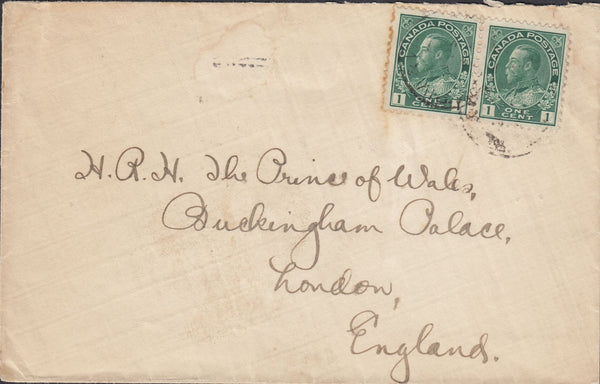 CANADA POSTAGE CANADA POSTAGE
1 ONE CENT 1 ONE CENT 1
H.R.H. The Prince of Wales,
Buckingham Palace,
London,
England.